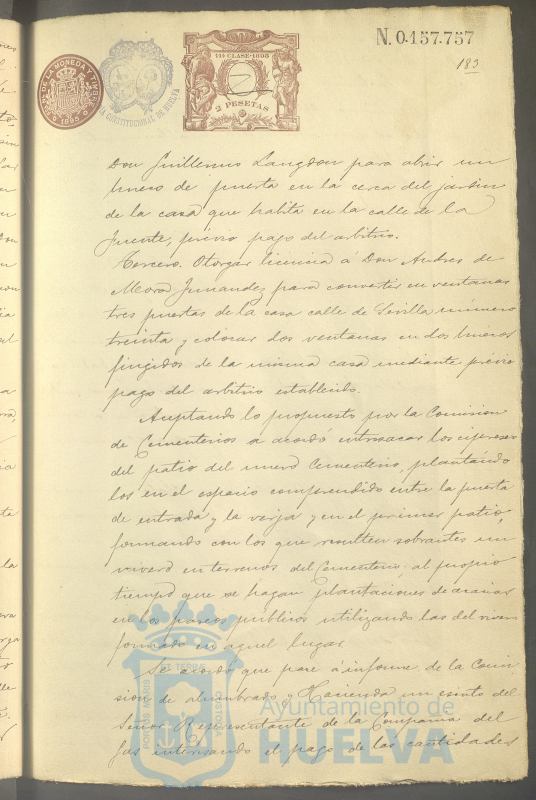 N. 0.157.757
183
DE LA MONEDA Y TIMBRE
1895
CONSTITUCIONAL DE HUELVA
11ª CLASE-1895
2 PESETAS
Don Guillermo Langdon para abrir un
hueco de puerta en la cerca del jardin
de la casa que habita en la calle de la
Fuente, prévio pago del arbitrio.
Tercero. Otorgar licencia á Don Andres de
Mora Fernandez para convertir en ventanas
tres puertas de la casa calle de Sevilla número
treinta y colocar dos ventanas en dos huecos
fingidos de la misma casa mediante prévio
pago del arbitrio establecido.
Aceptando lo propuesto por la Comision
de Cementerios se acordó entresacar los cipreses
del patio del nuevo Cementerio, plantándo
los en el espacio comprendido entre la puerta
de entrada y la verja y en el primer patio,
formando con los que resulten sobrantes un
vivero en terrenos del Cementerio; al propio
tiempo que se hagan plantaciones de acacias
en los paseos públicos utilizando las del vivero
formado en aquel lugar.
Se acordó que pase á informe de la Comi
sion de alumbrado y Hacienda un escrito del
Señor Representante de la Compañia del
Gas interesando el pago de las cantidades
PORTUS MARIS ET TERRAE CUSTODIA
Ayuntamiento de
HUELVA